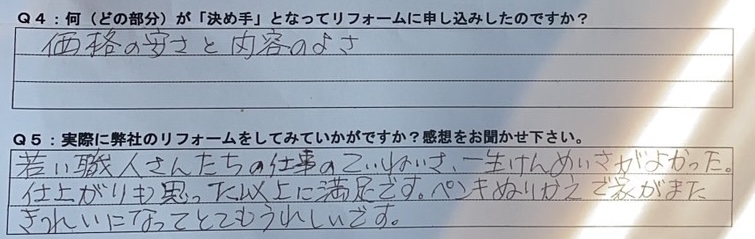 Q4：何（どの部分）が「決め手」となってリフォームに申し込みしたのですか？
価格の安さと内容のよさ
Q5：実際に弊社のリフォームをしてみていかがですか？感想をお聞かせ下さい。
若い職人さんたちの仕事のていねいさ、一生けんめいさがよかった。
仕上がりも思った以上に満足です。ペンキぬりかえで家がまた
きれいになってとてもうれしいです。